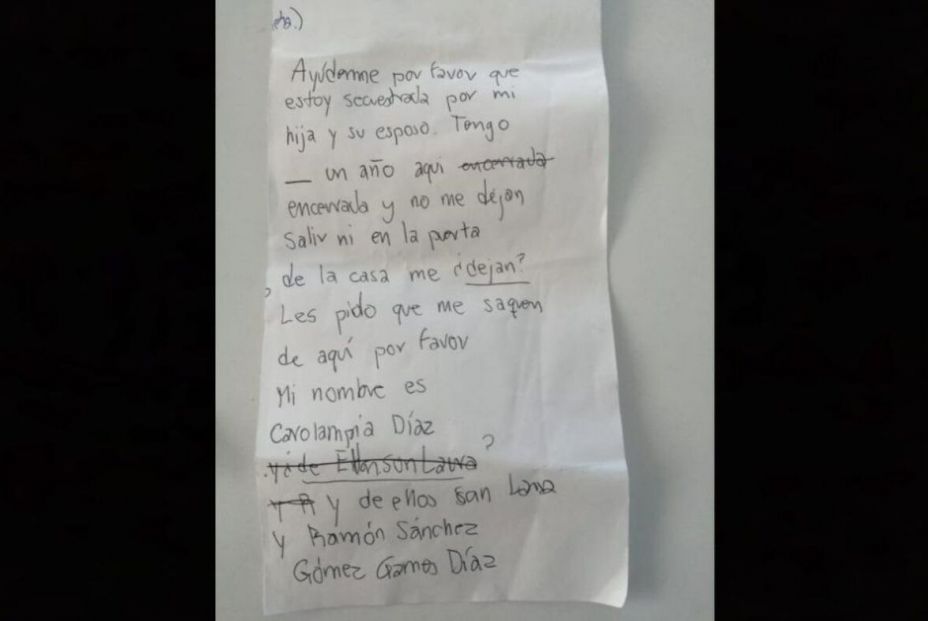 Ayúdenme por favor que
estoy secuestrada por mi
hija y su esposo. Tengo
__ un año aquí encerrada
encerrada y no me dejan
salir ni en la puerta
de la casa me ¿dejan?
Les pido que me saquen
de aquí por favor
Mi nombre es
Carolampia Díaz
?
y de ellos son
y Ramón Sánchez
Gómez Gamos Díaz